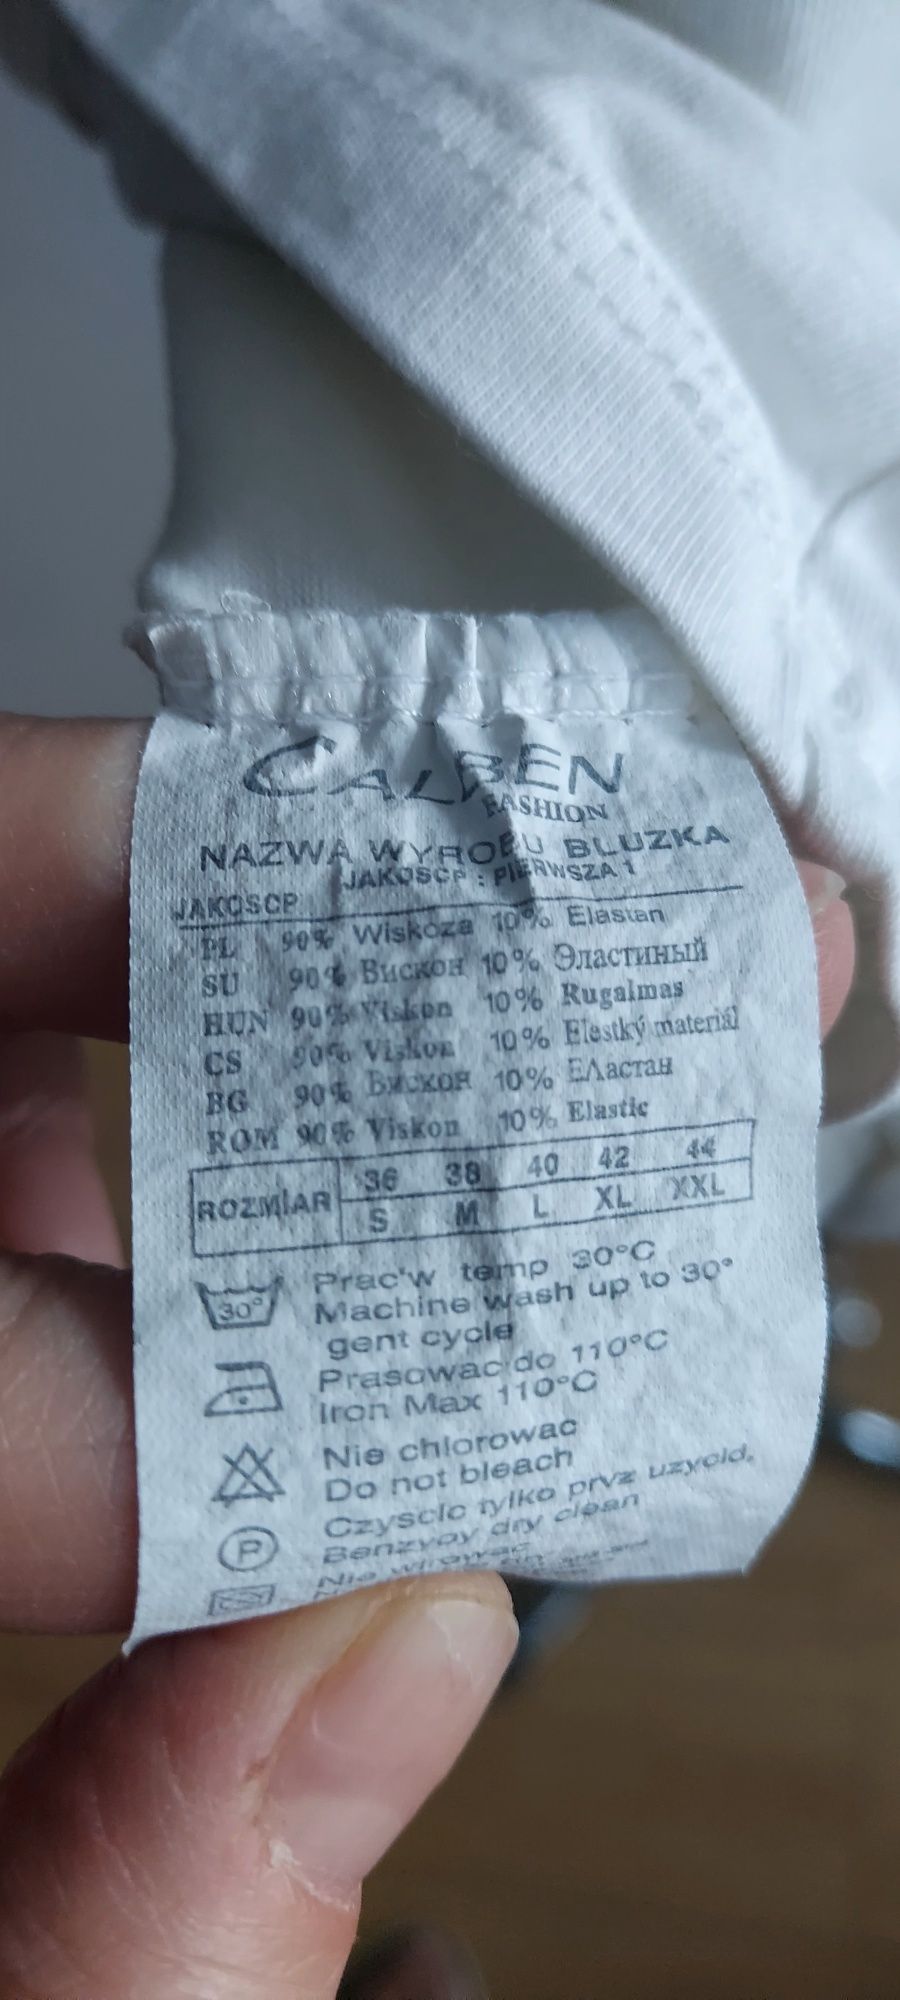 CALBEN
FASHION
NAZWA WYROBU BLUZKA
JAKOSCP : PIERWSZA 1
JAKOSCP
PL 90% Wiskoza 10% Elastan
SU 90% Вискон 10% Эластиный
HUN 90% Viskon 10% Rugalmas
CS 90% Viskon 10% Elestký materiál
BG 90% Вискон 10% ЕЛастан
ROM 90% Viskon 10% Elastic
ROZMIAR 36 38 40 42 44
S M L XL XXL
30° Prac'w temp 30°C
Machine wash up to 30°
gent cycle
Prasowac do 110°C
Iron Max 110°C
Nie chlorowac
Do not bleach
P Czyscic tylko prvz uzycid.
Benzyoy dry clean
Nie wirowac